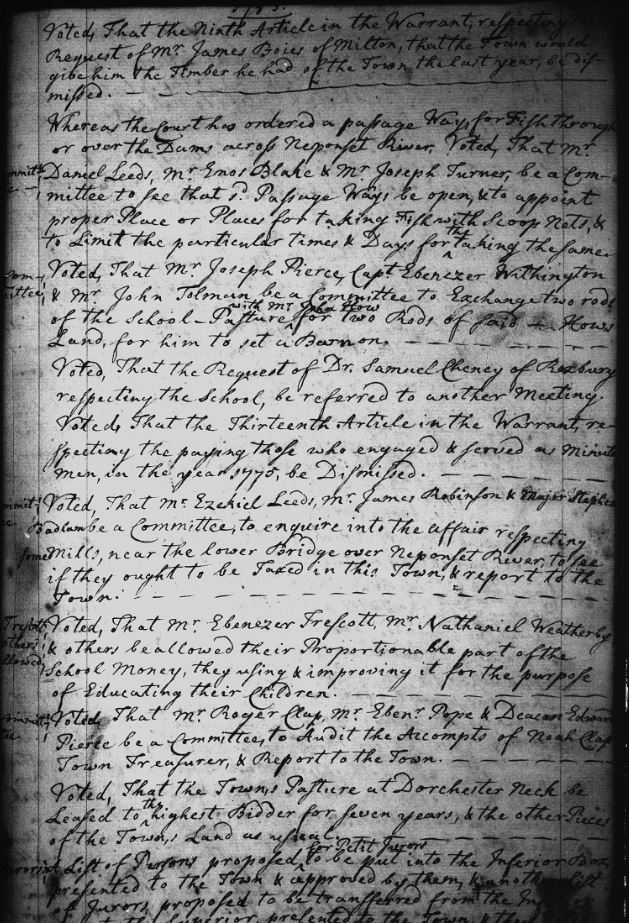 1785.
Voted, That the Ninth Article in the Warrant, respecting the
Request of Mr. James Boies of Milton, that the Town would
give him the Timber he had of the Town the last year, be dis-
missed.
Whereas the Court has ordered a passage Way for Fish through
or over the Dams across Neponset River, Voted, That Mr.
Daniel Leeds, Mr. Enos Blake & Mr. Joseph Turner, be a Com-
mittee to see that sd. Passage Ways be open, & to appoint
proper Place or Places for taking Fish with Scoop Nets, &
to Limit the particular times & Days for the taking the same.
Voted, That Mr. Joseph Pierce, Capt. Ebenezer Withington
& Mr. John Tolman be a Committee to Exchange two rods
of the School-Pasture with Mr. John How for two Rods of said Hows
Land, for him to set a Barn on.
Voted, That the Request of Dr. Samuel Cheney of Roxbury
respecting the School, be referred to another Meeting.
Voted, That the Thirteenth Article in the Warrant, re-
specting the paying those who engaged & served as Minute
Men, in the year 1775, be Dismissed.
Voted, That Mr. Ezekiel Leeds, Mr. James Robinson & Major Stephen
Badlam be a Committee, to enquire into the affair respecting
some Mills, near the lower Bridge over Neponset River, to see
if they ought to be Taxed in this Town, & report to the
Town.
Voted, That Mr. Ebenezer Trescott, Mr. Nathaniel Weatherby
& others be allowed their Proportionable part of the
School Money, they using & improving it for the purpose
of Educating their Children.
Voted, That Mr. Roger Clap, Mr. Ebenr. Pope & Deacon Edward
Pierce be a Committee, to Audit the Accompts of Noah Clap
Town Treasurer, & Report to the Town.
Voted, That the Town's Pasture at Dorchester Neck be
Leased to the highest Bidder for seven years, & the other Pieces
of the Town's Land as usual.
A List of Persons proposed for Petit Jurors to be put into the Inferior Box,
presented to the Town & approved by them, & another List
of Jurors proposed to be transferred from the Inferior
to the Superior presented to the Town